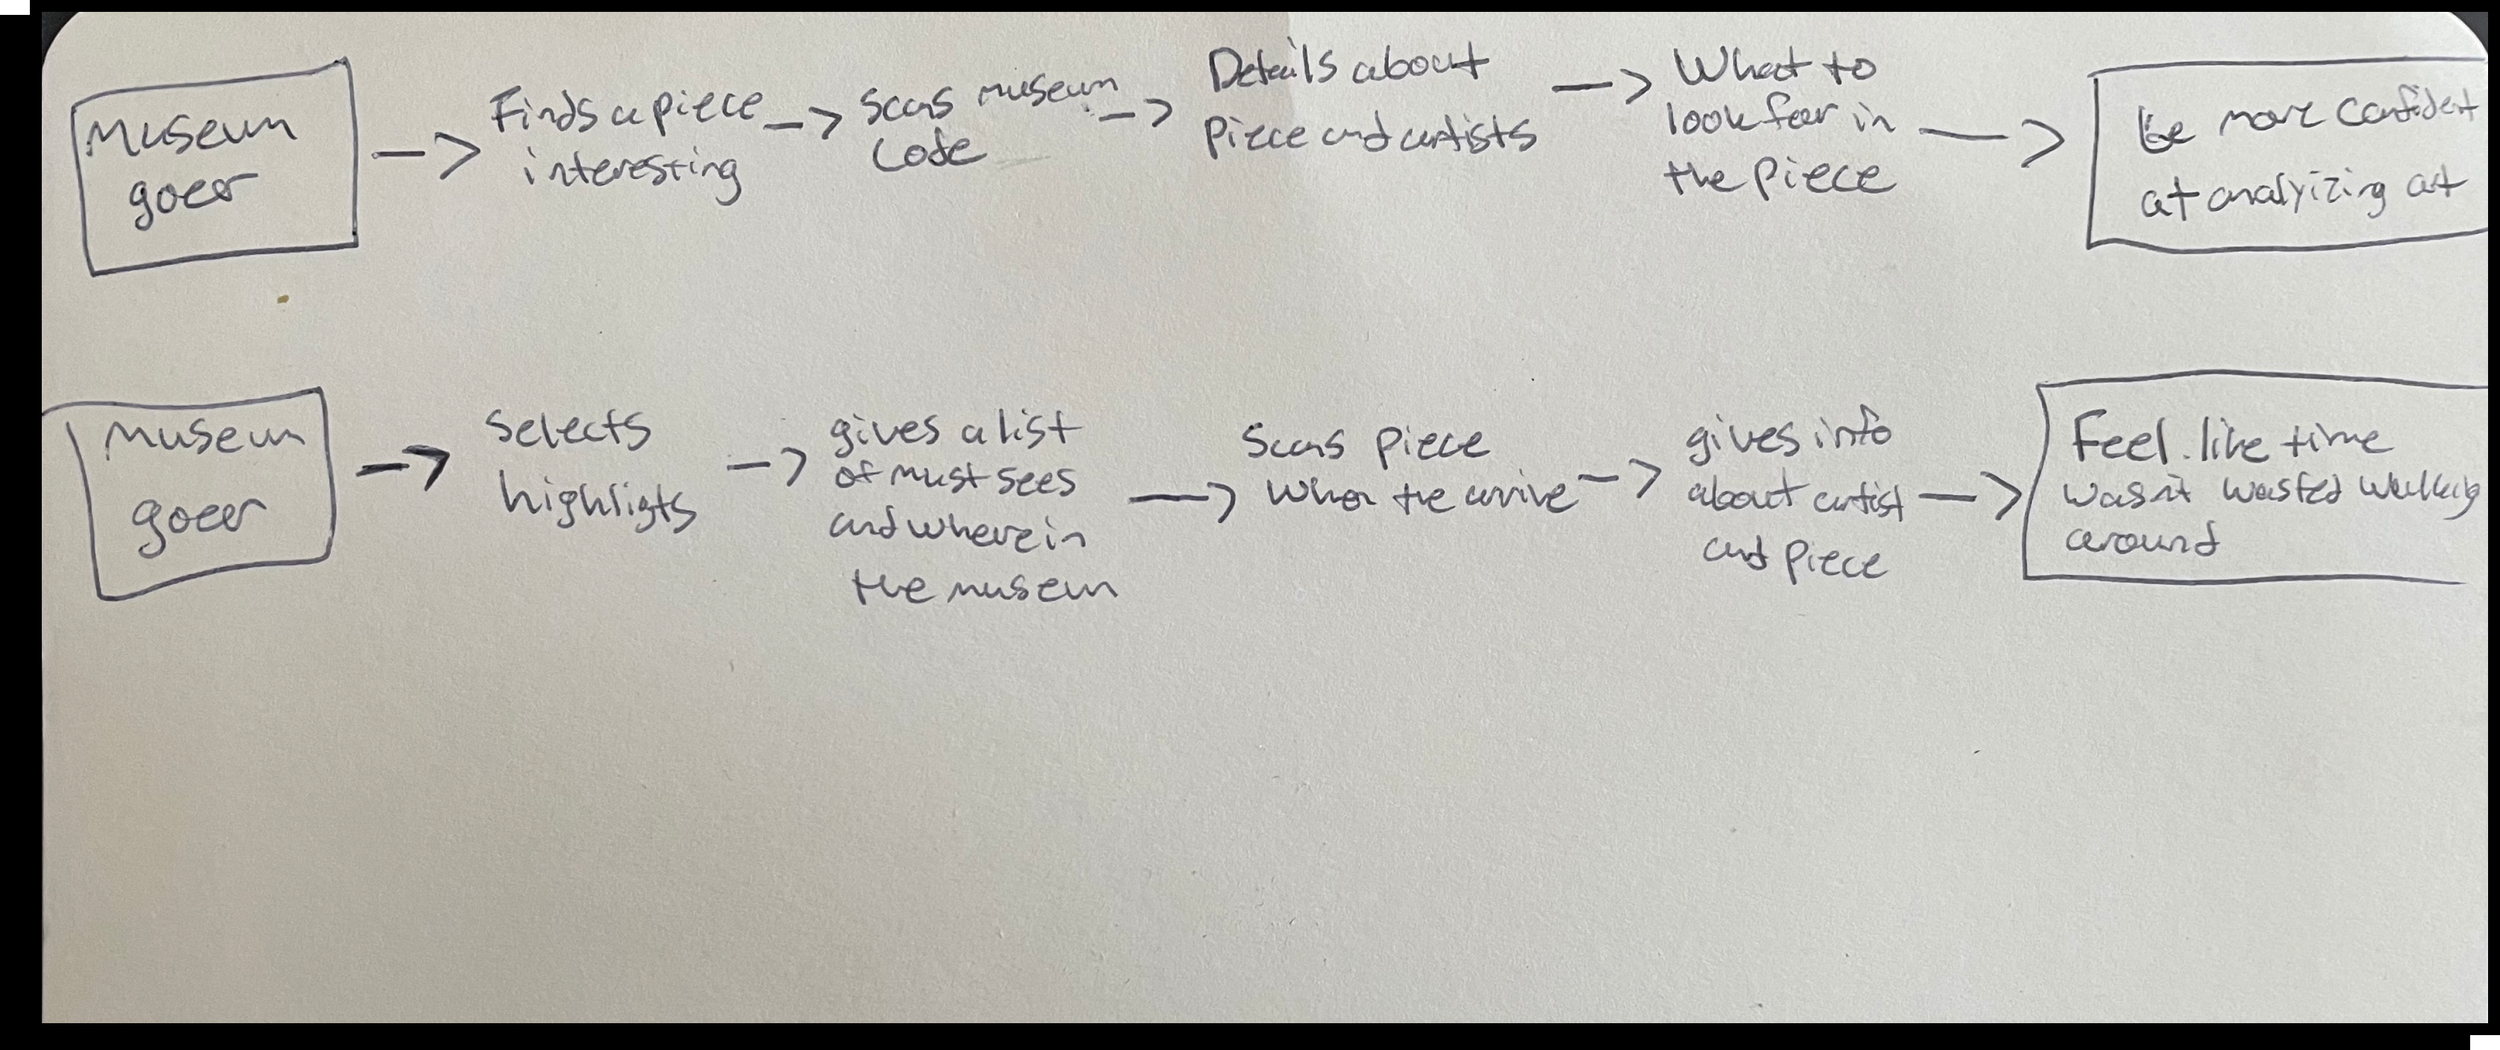 Museum
goer
Finds a piece
interesting
Scans museum
Code
Details about
piece and artists
What to
look for in
the piece
be more confident
at analyizing art
Museum
goer
Selects
highligts
gives a list
of must sees
and where in
the museum
Scans piece
when the arrive
gives info
about artist
and piece
Feel like time
wasn't wasted walking
around